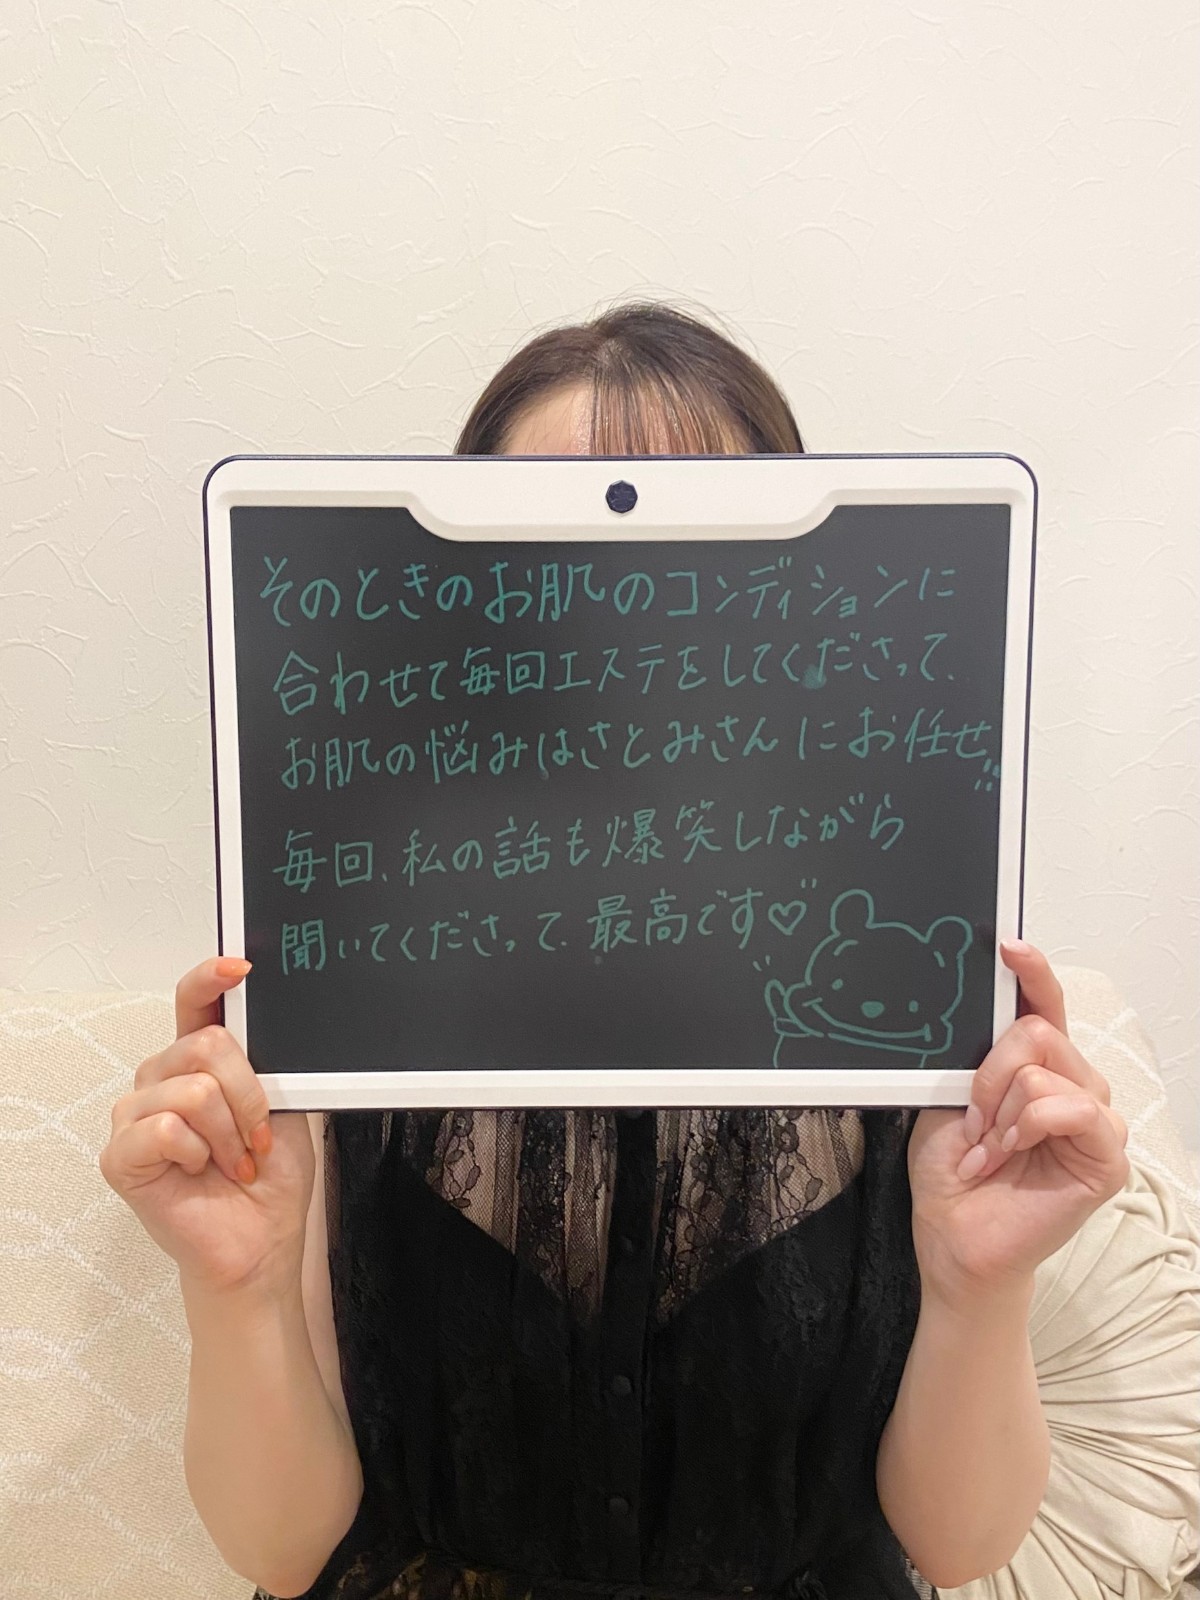 そのときのお肌のコンディションに
合わせて毎回エステをしてくださって、
お肌の悩みはさとみさんにお任せ!!
毎回、私の話も爆笑しながら
聞いてくださって、最高です♡